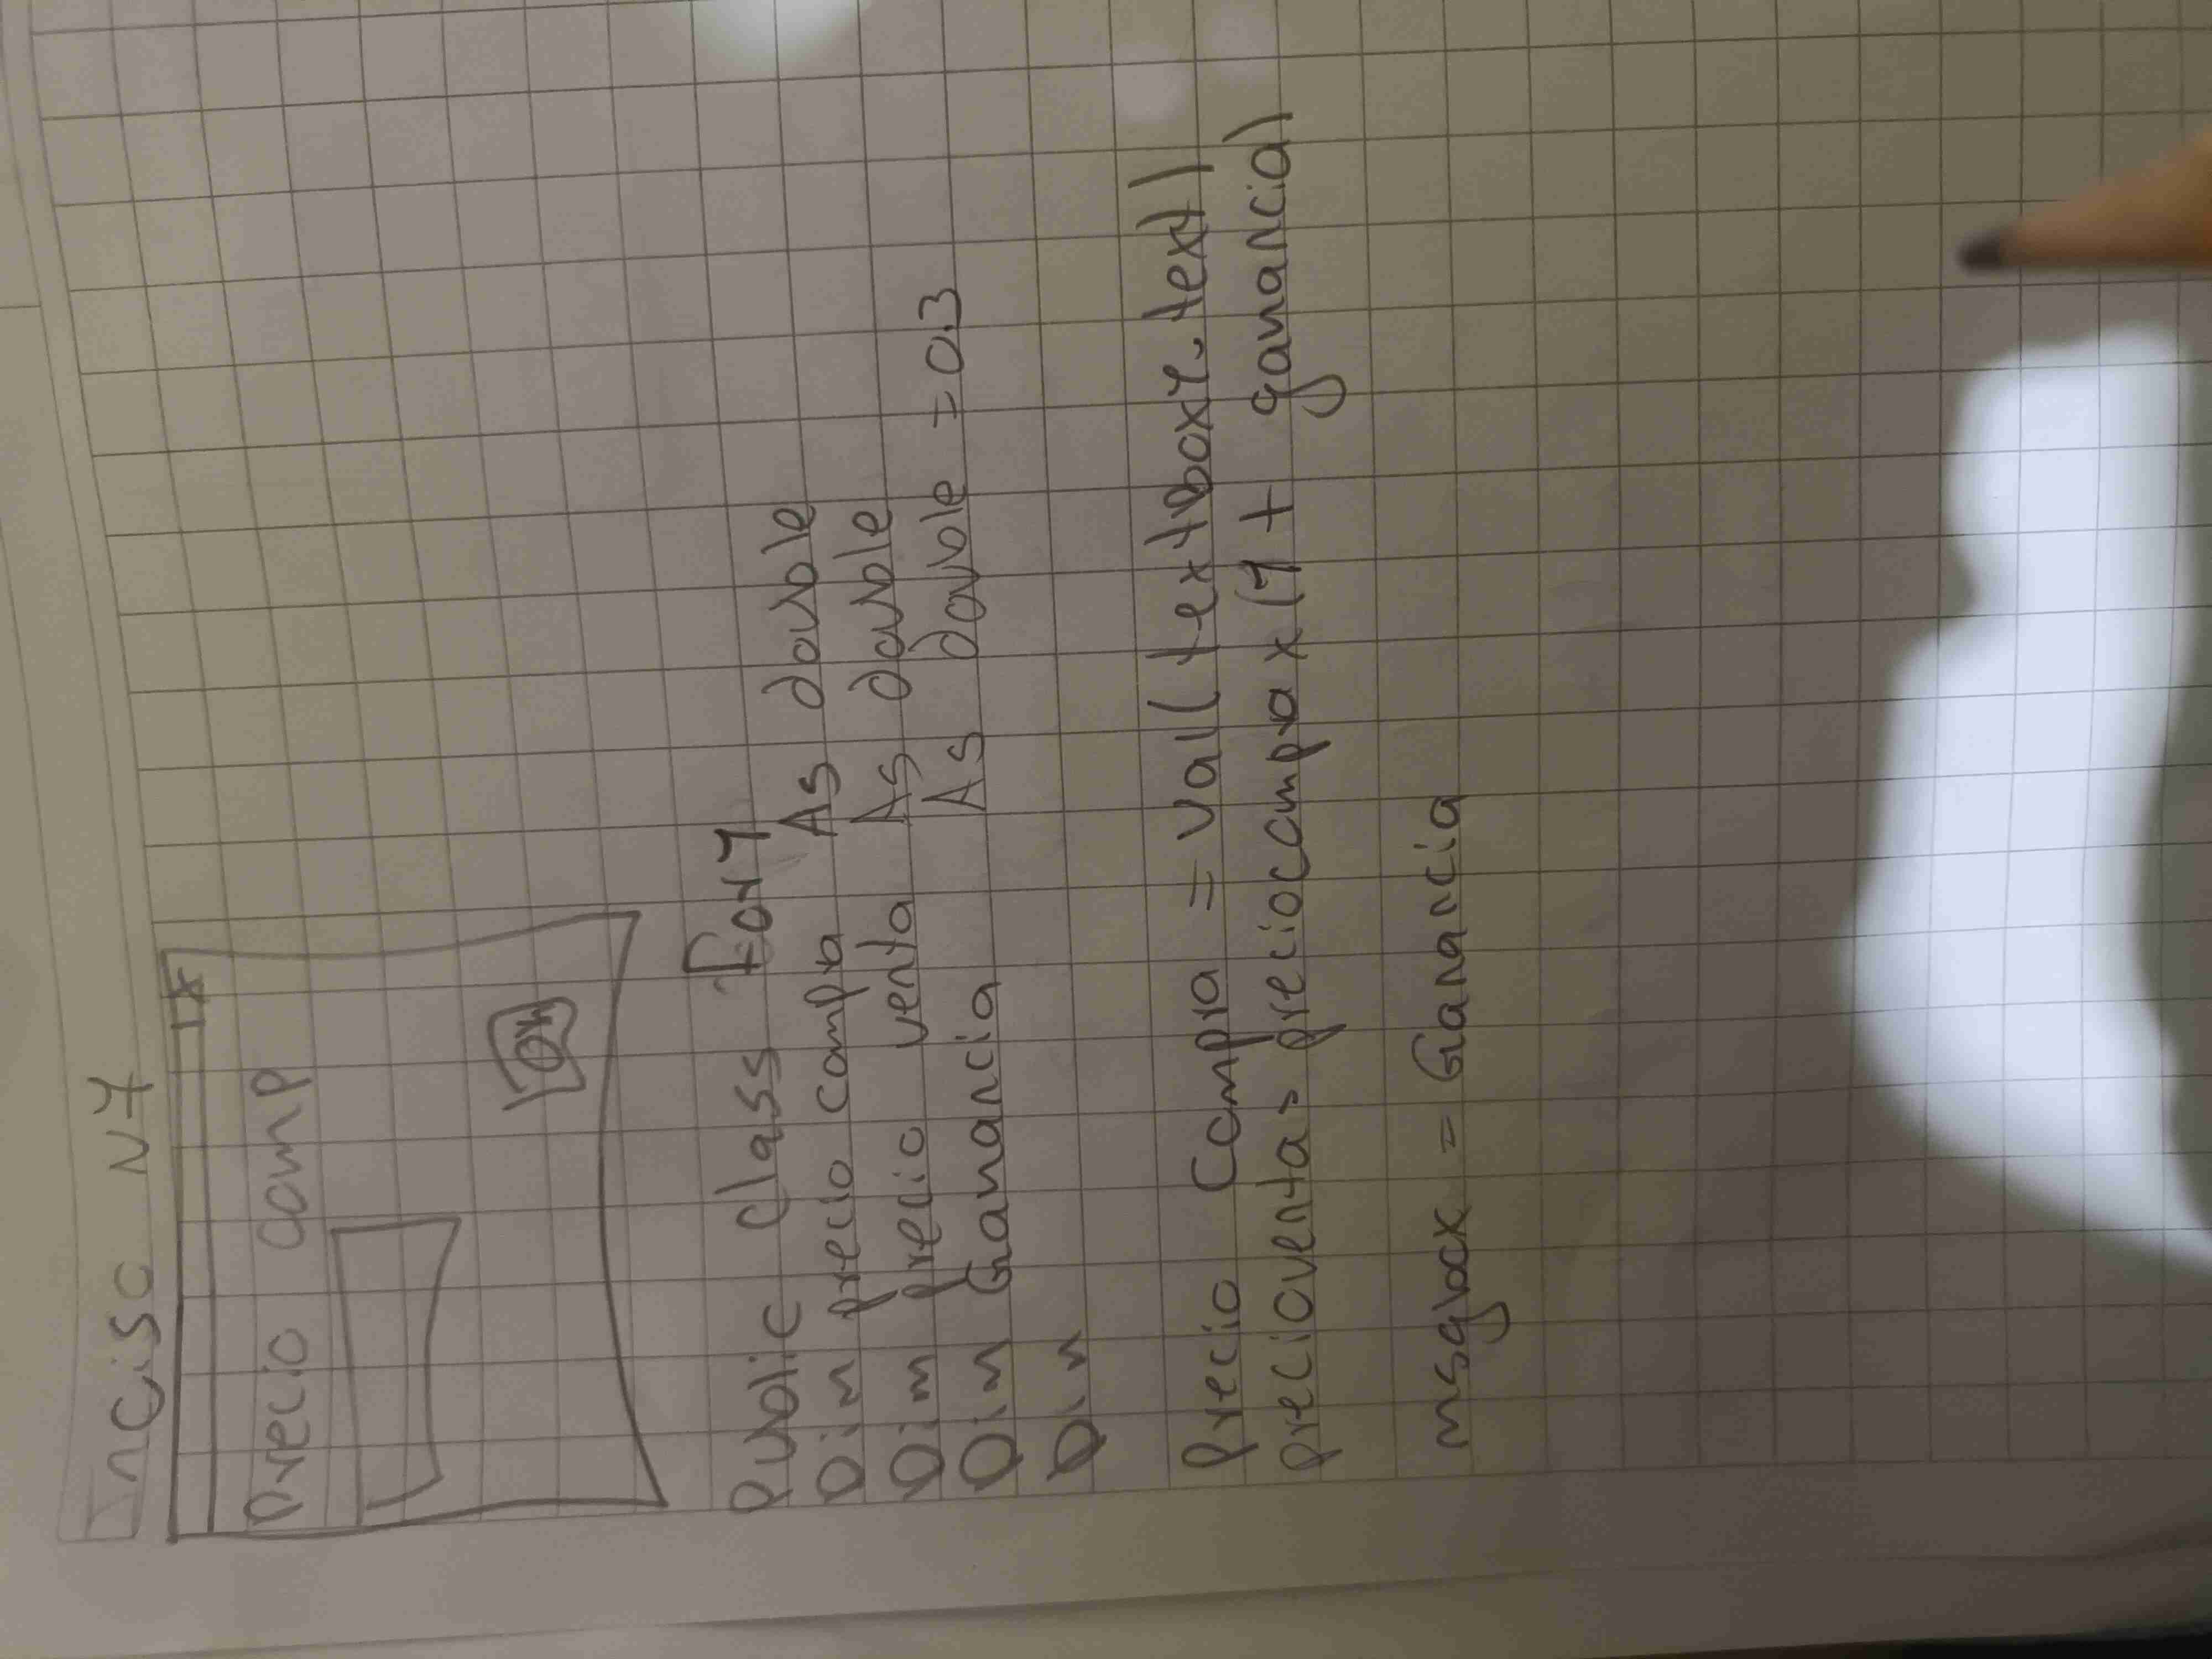 Inciso N7
Precio comp
Public class For1
Dim precio compra As double
Dim precio venta As double
Dim Ganancia As double = 0.3
Dim
Precio Compra = val(textBox1.text)
precioventa = preciocompra x (1 + ganancia)
msgbox = Ganancia